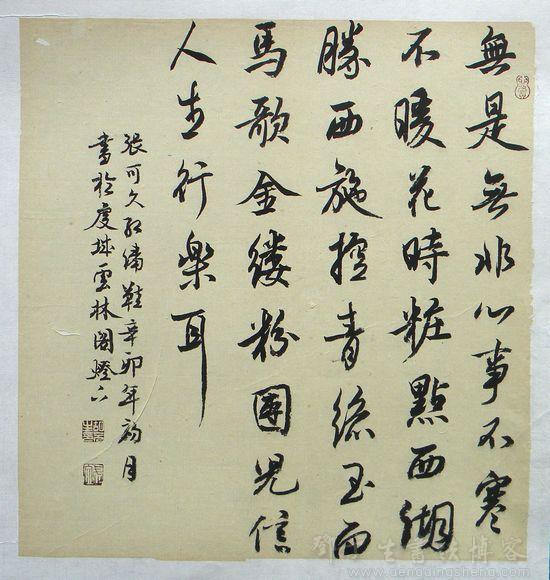 無是無非心事不寒
不暖花時粧點西湖
勝西施控青絲玉面
馬歌金縷粉團兒信
人生行樂耳
張可久紅繡鞋辛卯年初月
書於虞城雲林閣燈下
www.dengqingsheng.com